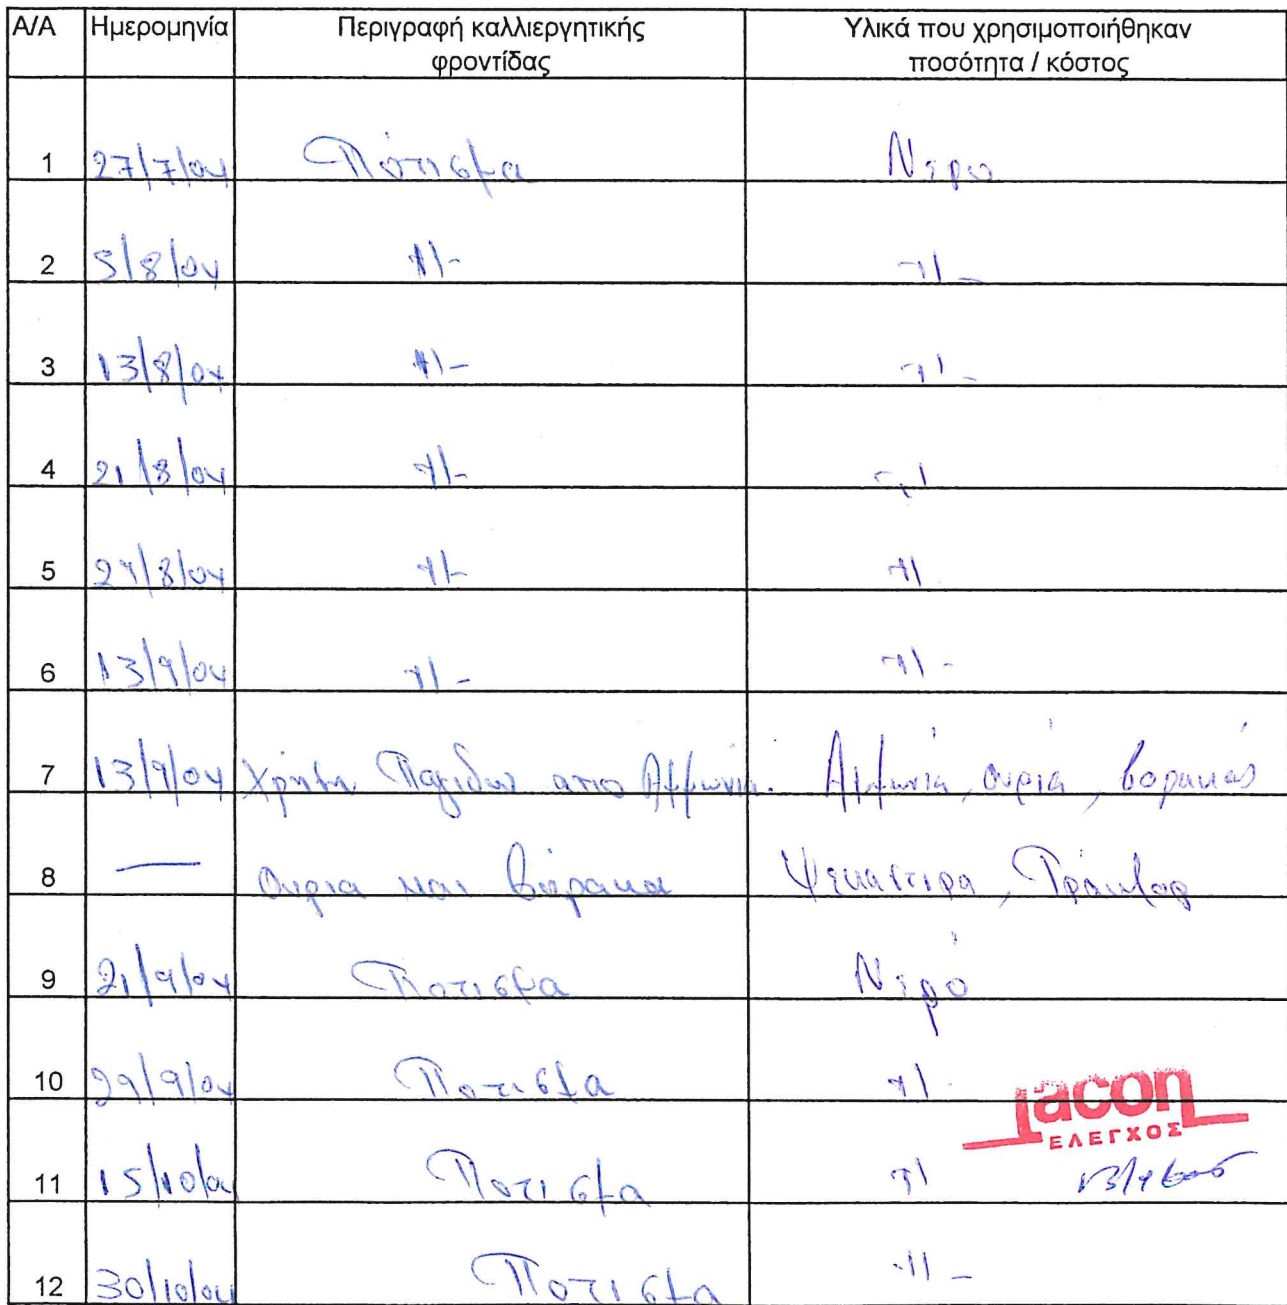 Α/Α Ημερομηνία Περιγραφή καλλιεργητικής φροντίδας Υλικά που χρησιμοποιήθηκαν ποσότητα / κόστος
1 27/7/04 Πότισμα Νερο
2 5/8/04 -//- -//-
3 13/8/04 -//- -//-
4 21/8/04 -//- -//
5 29/8/04 -//- -//
6 13/9/04 -//- -//-
7 13/9/04 Χρήση Παγιδων απο Αμμωνία. Αμμωνία, ουρία, βορακας
8 — Ουρια και βόρακα Ψεκαστιρα, Τράκτορ
9 21/9/04 Ποτισμα Νερό
10 29/9/04 Ποτισμα -//
lacon
ΕΛΕΓΧΟΣ
11 15/10/04 Ποτισμα -//
12 30/10/04 Ποτισμα -//-